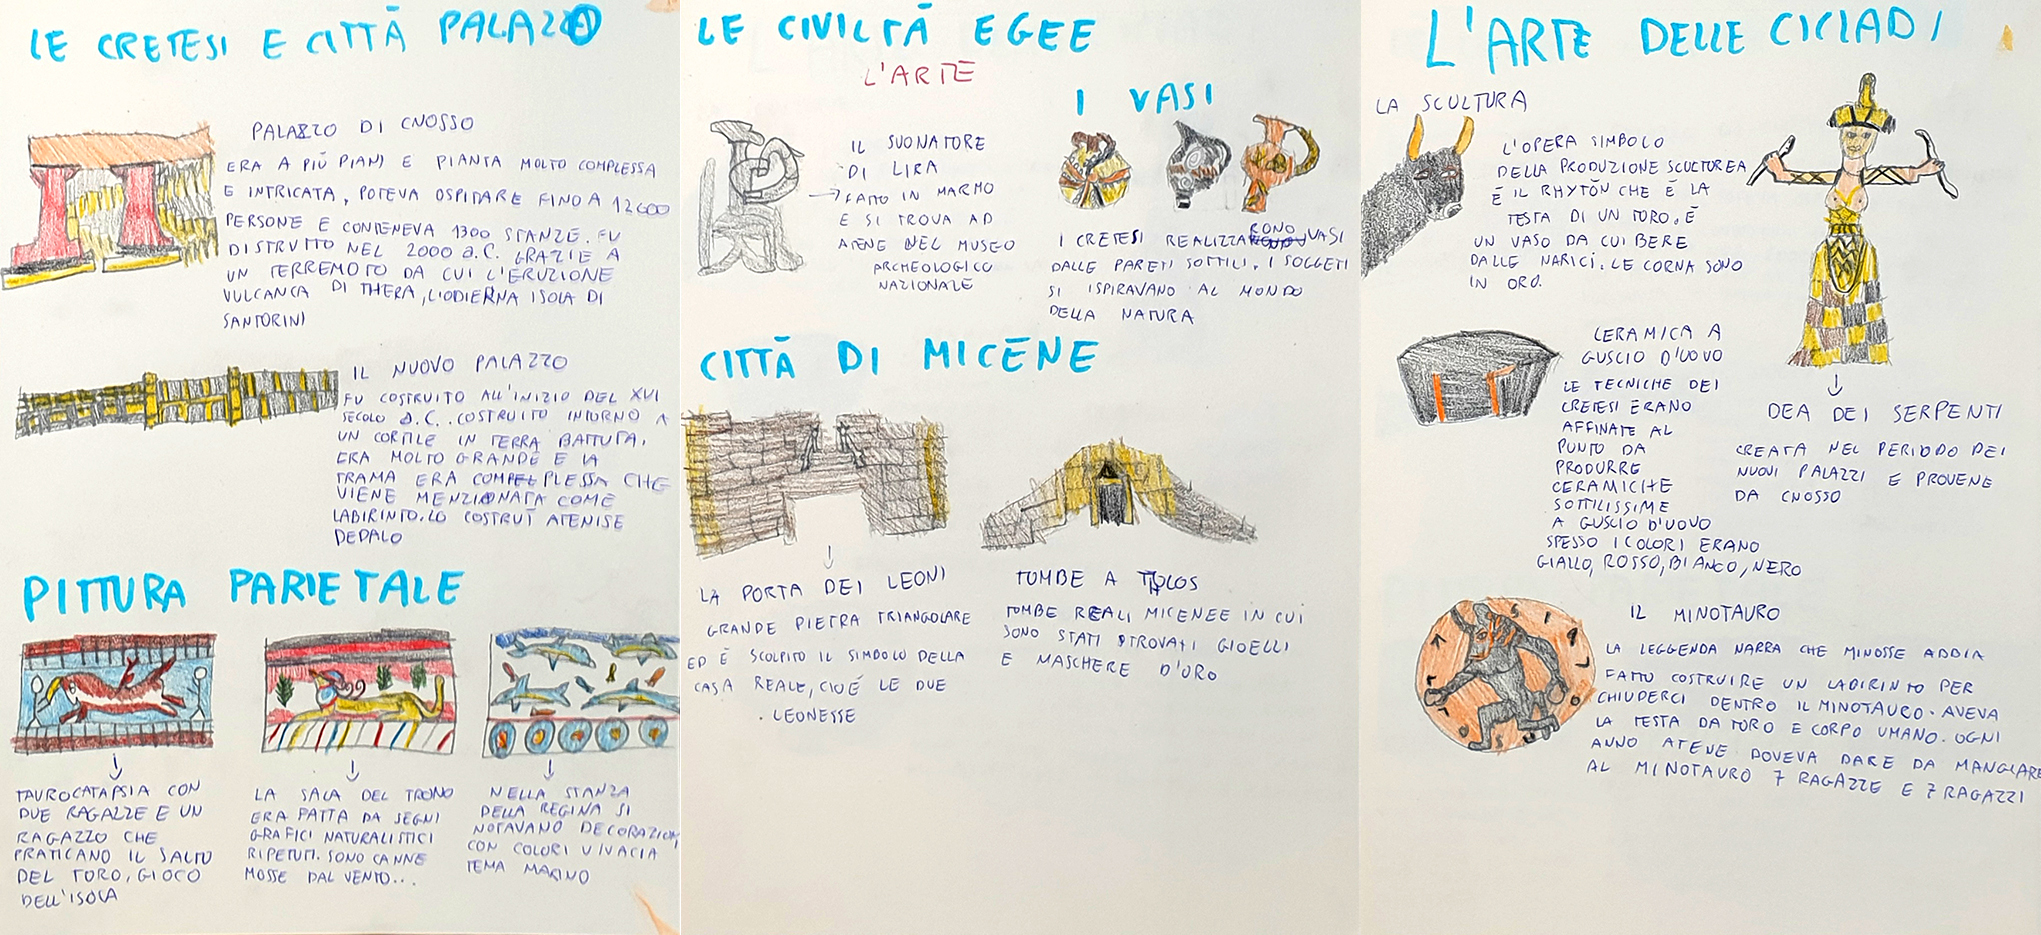 LE CRETESI E CITTÀ PALAZZO
PALAZZO DI CNOSSO
ERA A PIÙ PIANI E PIANTA MOLTO COMPLESSA
E INTRICATA, POTEVA OSPITARE FINO A 12600
PERSONE E CONTENEVA 1300 STANZE. FU
DISTRUTTO NEL 2000 a.C. GRAZIE A
UN TERREMOTO DA CUI L'ERUZIONE
VULCANCA DI THERA, L'ODIERNA ISOLA DI
SANTORINI
IL NUOVO PALAZZO
FU COSTRUITO ALL'INIZIO DEL XVI
SECOLO a.C.. COSTRUITO INTORNO A
UN CORTILE IN TERRA BATTUTA,
ERA MOLTO GRANDE E LA
TRAMA ERA COMPLESSA CHE
VIENE MENZIONATA COME
LABIRINTO. LO COSTRUÌ ATENISE
DEDALO
PITTURA PARIETALE
TAUROCATAPSIA CON
DUE RAGAZZE E UN
RAGAZZO CHE
PRATICANO IL SALTO
DEL TORO, GIOCO
DELL'ISOLA
LA SALA DEL TRONO
ERA FATTA DA SEGNI
GRAFICI NATURALISTICI
RIPETUTI. SONO CANNE
MOSSE DAL VENTO...
NELLA STANZA
DELLA REGINA SI
NOTAVANO DECORAZIONI
CON COLORI VIVACI A
TEMA MARINO
LE CIVILTÀ EGEE
L'ARTE
IL SUONATORE
DI LIRA
FATTO IN MARMO
E SI TROVA AD
ATENE NEL MUSEO
ARCHEOLOGICO
NAZIONALE
I VASI
I CRETESI REALIZZARONO VASI
DALLE PARETI SOTTILI. I SOGGETI
SI ISPIRAVANO AL MONDO
DELLA NATURA
CITTÀ DI MICENE
LA PORTA DEI LEONI
GRANDE PIETRA TRIANGOLARE
ED È SCOLPITO IL SIMBOLO DELLA
CASA REALE, CIOÈ LE DUE
LEONESSE
TOMBE A THOLOS
TOMBE REALI MICENEE IN CUI
SONO STATI TROVATI GIOELLI
E MASCHERE D'ORO
L'ARTE DELLE CICLADI
LA SCULTURA
L'OPERA SIMBOLO
DELLA PRODUZIONE SCULTOREA
È IL RHYTÒN CHE È LA
TESTA DI UN TORO. È
UN VASO DA CUI BERE
DALLE NARICI. LE CORNA SONO
IN ORO.
DEA DEI SERPENTI
CREATA NEL PERIODO DEI
NUOVI PALAZZI E PROVENE
DA CNOSSO
CERAMICA A
GUSCIO D'UOVO
LE TECNICHE DEI
CRETESI ERANO
AFFINATE AL
PUNTO DA
PRODURRE
CERAMICHE
SOTTILISSIME
A GUSCIO D'UOVO
SPESSO I COLORI ERANO
GIALLO, ROSSO, BIANCO, NERO
IL MINOTAURO
LA LEGGENDA NARRA CHE MINOSSE ABBIA
FATTO COSTRUIRE UN LABIRINTO PER
CHIUDERCI DENTRO IL MINOTAURO. AVEVA
LA TESTA DA TORO E CORPO UMANO. OGNI
ANNO ATENE DOVEVA DARE DA MANGIARE
AL MINOTAURO 7 RAGAZZE E 7 RAGAZZI